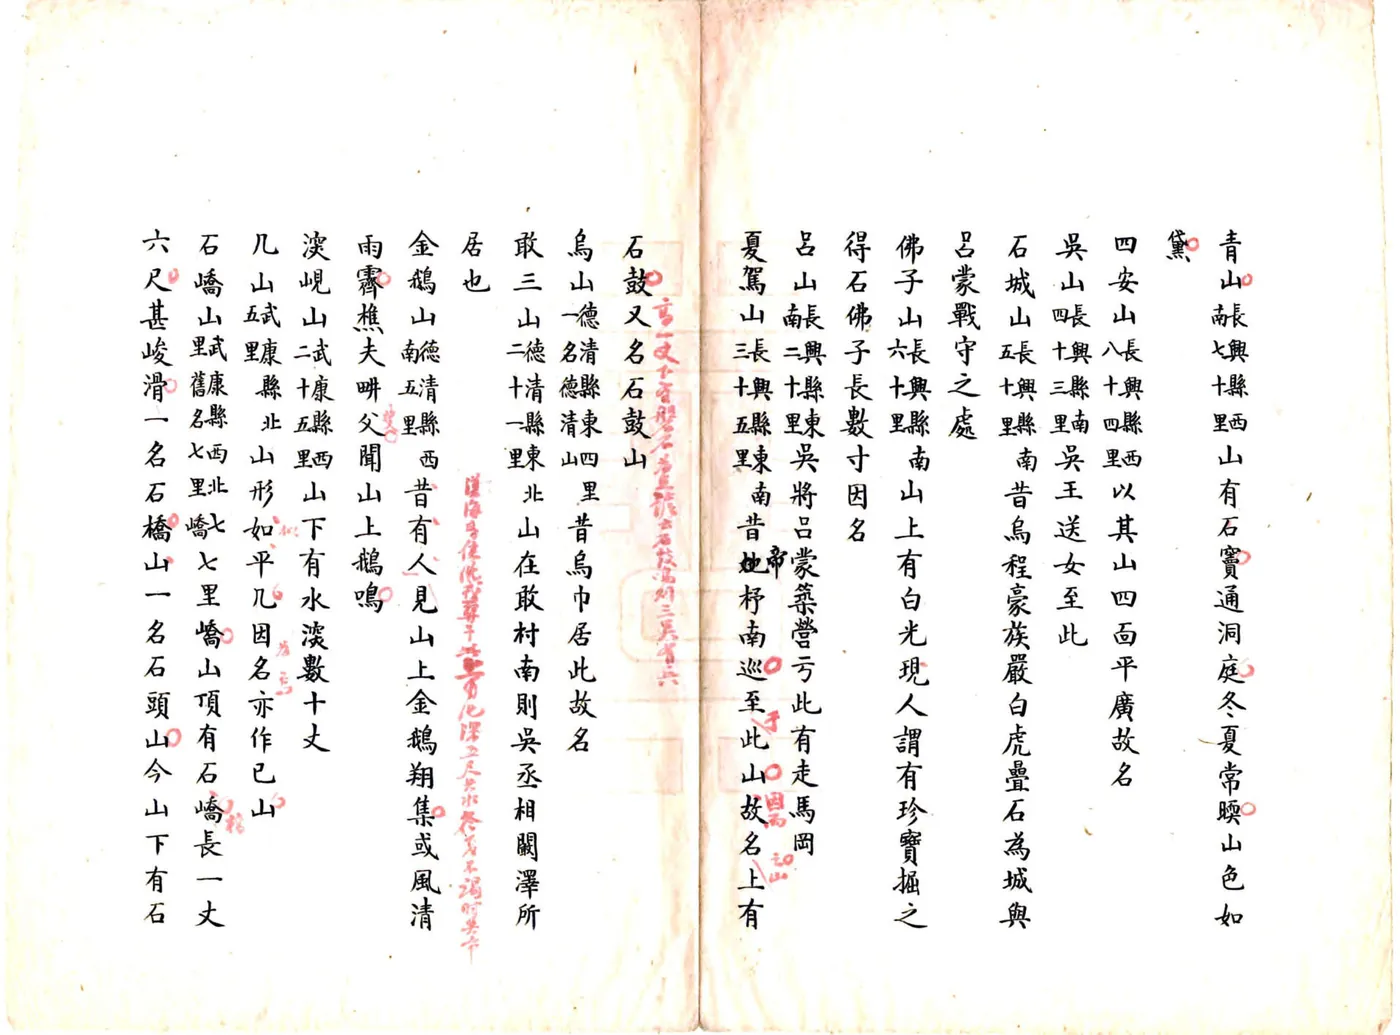 青山長興縣西南七十里山有石竇通洞庭冬夏常暎山色如
黛
四安山長興縣西八十四里以其山四面平廣故名
吳山長興縣南四十三里吳王送女至此
石城山長興縣五十里南昔烏程豪族嚴白虎疊石為城與
呂蒙戰守之處
佛子山長興縣六十里南山上有白光現人謂有珍寶掘之
得石佛子長數寸因名
呂山長興縣東南二十里吳將呂蒙築營亏此有走馬岡
夏駕山長興縣東三十五里南昔杼南巡至此山故名上有
帝
于
石鼓又名石鼓山
烏山德清縣東四里一名德清山昔烏巾居此故名
敢三山德清縣東二十一里北山在敢村南則吳丞相闞澤所
居也
金鵝山德清縣西南五里昔有人見山上金鵝翔集或風清
雨霽樵夫畊父聞山上鵝鳴
湥峴山武康縣西二十五里山下有水湥數十丈
几山武康縣北五里山形如平几因名亦作已山
石嶠山武康縣西北七里舊名七里嶠七里嶠山頂有石嶠長一丈
六尺甚峻滑一名石橋山一名石頭山今山下有石